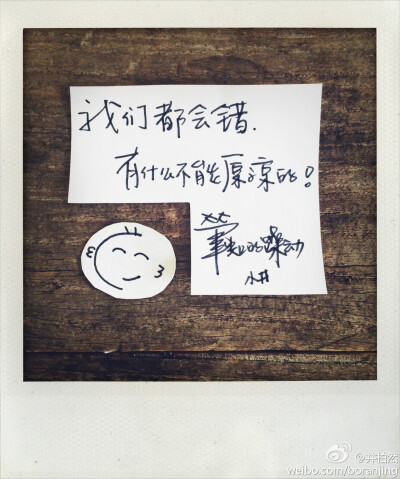 我们都会错.
有什么不能原凉的!
的躁动
小井
@井柏然
weibo.com/boranjing